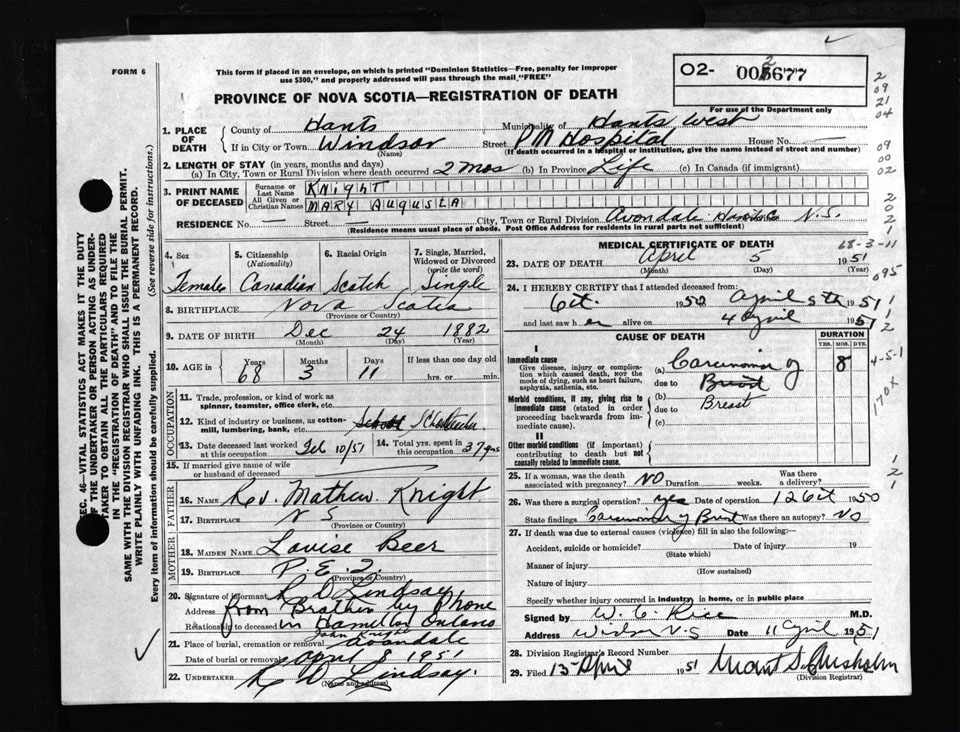 FORM 6
This form if placed in an envelope, on which is printed "Dominion Statistics—Free, penalty for improper
use $300," and properly addressed will pass through the mail "FREE"
O2- 005677
2
For use of the Department only
PROVINCE OF NOVA SCOTIA—REGISTRATION OF DEATH
2
09
21
04
09
00
02
2
0
2
1
1. PLACE OF DEATH
County of Hants Municipality of Hants West
If in City or Town Windsor Street PM Hospital House No. —
(Name) (If death occurred in a hospital or institution, give the name instead of street and number)
2. LENGTH OF STAY (in years, months and days)
(a) In City, Town or Rural Division where death occurred 2 mos (b) In Province Life (c) In Canada (if immigrant)
3. PRINT NAME OF DECEASED
Surname or Last Name KNIGHT
All Given or Christian Names MARY AUGUSTA
RESIDENCE No. — Street — City, Town or Rural Division Avondale Hants Co N.S.
(Residence means usual place of abode. Post Office Address for residents in rural parts not sufficient)
4. Sex Female
5. Citizenship (Nationality) Canadian
6. Racial Origin Scotch
7. Single, Married, Widowed or Divorced (write the word) Single
8. BIRTHPLACE Nova Scotia
(Province or Country)
9. DATE OF BIRTH Dec 24 1882
(Month) (Day) (Year)
10. AGE in Years Months Days If less than one day old
68 3 11 hrs. or min.
OCCUPATION
11. Trade, profession, or kind of work as
spinner, teamster, office clerk, etc.
12. Kind of industry or business, as cotton-
mill, lumbering, bank, etc.
13. Date deceased last worked at this occupation 10/51
14. Total yrs. spent in this occupation 37 yrs
15. If married give name of wife
or husband of deceased
FATHER
16. NAME Rev. Mathew Knight
17. BIRTHPLACE N S
(Province or Country)
MOTHER
18. MAIDEN NAME Louise Beer
19. BIRTHPLACE P.E.I.
(Province or Country)
20. Signature of informant Lindsay
Address from Brother by Phone
Relationship to deceased in Hamilton Ontario
John Knight
21. Place of burial, cremation or removal Avondale
Date of burial or removal April 8 1951
22. UNDERTAKER Lindsay
(Name and address)
MEDICAL CERTIFICATE OF DEATH
68-3-11
23. DATE OF DEATH April 5 1951
(Month) (Day) (Year)
095
24. I HEREBY CERTIFY that I attended deceased from:
Oct. 1950 April 5th 1951
and last saw her alive on 4 April 1951
1
2
CAUSE OF DEATH
DURATION
YRS. MOS. DYS.
I
Immediate cause
Give disease, injury or complica-
tion which caused death, not the
mode of dying, such as heart failure,
asphyxia, asthenia, etc.
(a) Carcinoma of 8
due to
Morbid conditions, if any, giving rise to
immediate cause (stated in order
proceeding backwards from im-
mediate cause).
(b) Breast
due to
(c)
II
Other morbid conditions (if important)
contributing to death but not
causally related to immediate cause.
4-5-1
170x
1
2
1
25. If a woman, was the death
associated with pregnancy? NO Duration weeks. Was there
a delivery?
26. Was there a surgical operation? yes Date of operation 12 Oct 1950
State findings Carcinoma of Breast Was there an autopsy? NO
27. If death was due to external causes (violence) fill in also the following:
Accident, suicide or homicide? Date of injury 19
(State which)
Manner of injury
(How sustained)
Nature of injury
Specify whether injury occurred in industry, in home, or in public place
Signed by W. C. Rice M.D.
Address Windsor N.S Date 11 April 1951
28. Division Registrar's Record Number
29. Filed 13 April 1951 Chisholm
(Division Registrar)
SEC. 46—VITAL STATISTICS ACT MAKES IT THE DUTY
OF THE UNDERTAKER OR PERSON ACTING AS UNDER-
TAKER TO OBTAIN ALL THE PARTICULARS REQUIRED
IN THE "REGISTRATION OF DEATH" AND TO FILE THE
SAME WITH THE DIVISION REGISTRAR WHO SHALL ISSUE THE BURIAL PERMIT.
WRITE PLAINLY WITH UNFADING INK. THIS IS A PERMANENT RECORD.
Every item of information should be carefully supplied. (See reverse side for instructions.)